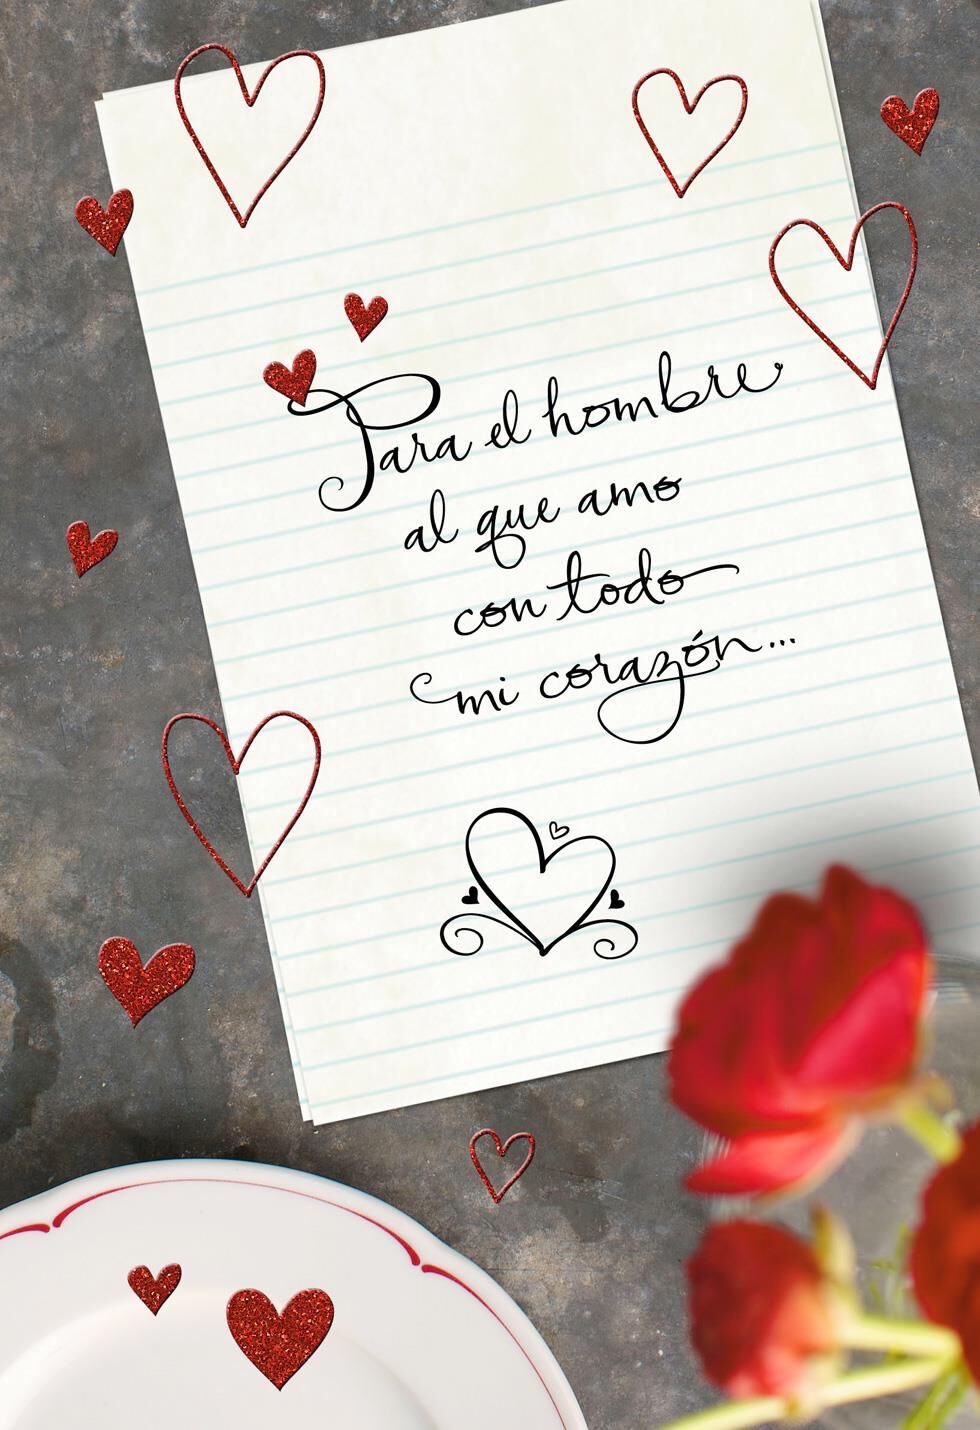 Para el hombre
al que amo
con todo
mi corazón...